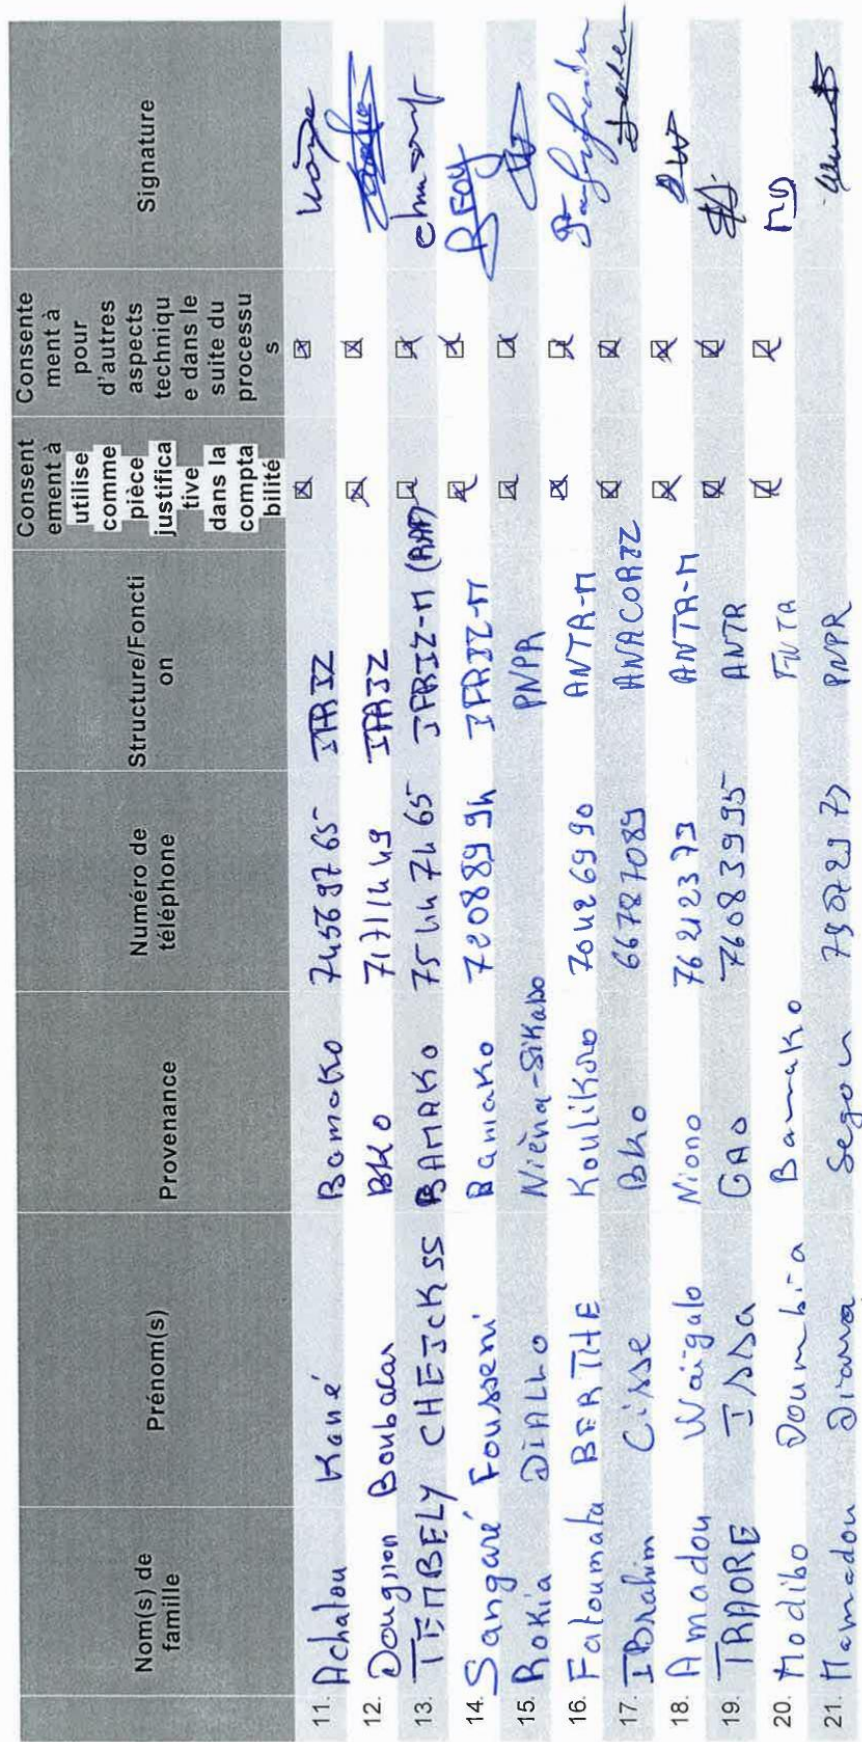 Nom(s) de famille Prénom(s) Provenance Numéro de téléphone Structure/Foncti on Consent ement à utilise comme pièce justifica tive dans la compta bilité Consente ment à pour d'autres aspects techniqu e dans le suite du processu s Signature
11. Achatou Kané Bamako 74569765 IPRIZ
12. Boubacar BKO 71711449 IPRIZ
13. TEMBELY CHEICK SS BAMAKO 75447465 IPRIZ-M (RAF)
14. Sangaré Fousseni Bamako 72088994 IPRIZ-M
15. Rokia DIALLO Nièna-Sikasso PNPR
16. Fatoumata BERTHE Koulikoro 70426990 ANTA-M
17. IBrahim Cisse BKO 66787089 ANACORIZ
18. Amadou Waigalo Niono 76212379 ANTA-M
19. TRAORE ISSA GAO 76083995 ANTR
20. Modibo Doumbia Bamako MD
21. Mamadou Diarra Segou PNPR